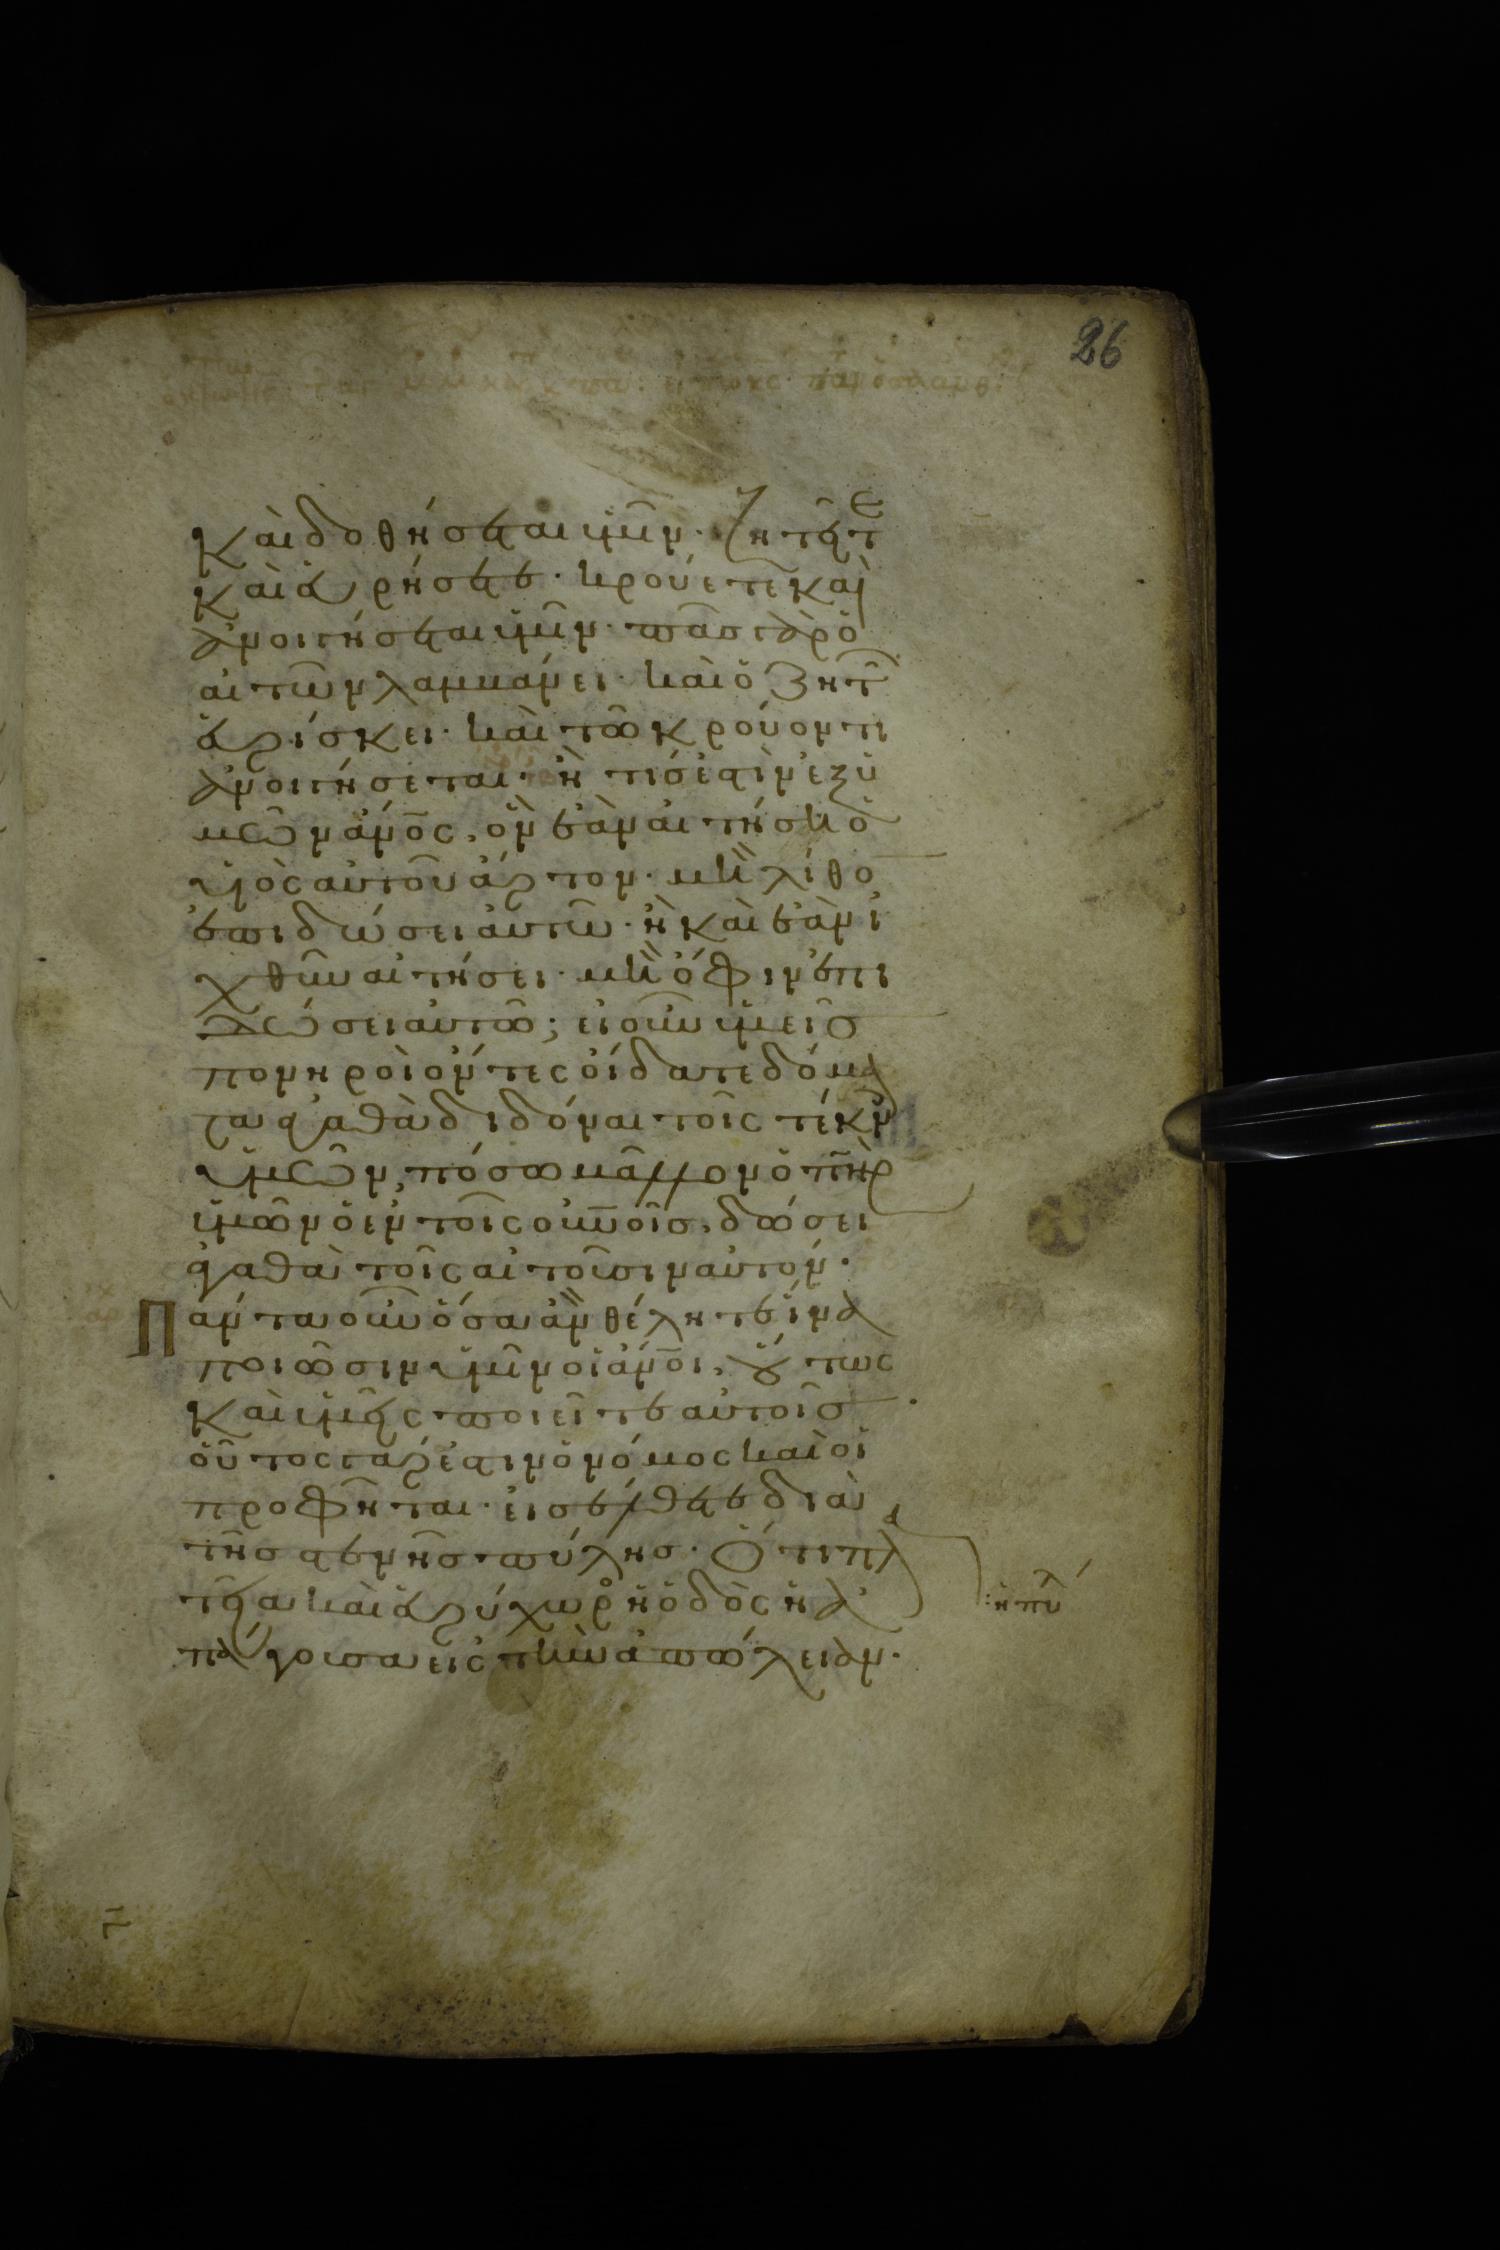 26
καὶ δοθήσεται ὑμῖν· ζητεῖτε
καὶ εὑρήσετε· κρούετε καὶ
ἀνοιγήσεται ὑμῖν· πᾶς γὰρ ὁ
αἰτῶν λαμβάνει· καὶ ὁ ζητ
εὑρίσκει· καὶ τῶ κρούοντι
ἀνοιγήσεται· ἢ τίς ἐστὶν ἐξ ὑ
μῶν ἄνος, ὃν ἐὰν αἰτήση ὁ
υἱὸς αὐτοῦ ἄρτον· μὴ λίθο
ἐπιδώσει αὐτῶ· ἢ καὶ ἐὰν ἰ
χθῦν αἰτήσει· μὴ ὄφιν ἐπι
δώσει αὐτῶ; εἰ οὖν ὑμεῖς
πονηροὶ ὄντες οἴδατε δόμα
τα ἀγαθὰ διδόναι τοῖς τέκν
ὑμῶν, πόσω μᾶλλον ὁ πηρ
ὑμῶν ὁ ἐν τοῖς οὐνοῖς, δώσει
ἀγαθὰ τοῖς αἰτοῦσιν αὐτόν·
Πάντα οὖν ὅσα ἂν θέλητε ἵνα
ποιῶσιν ὑμῖν οἱ ἄνοι, οὕτως
καὶ ὑμεῖς ποιεῖτε αὐτοῖς·
οὗτος γάρ ἐστιν ὁ νόμος καὶ οἱ
προφῆται· εἰσέλθετε διὰ
τῆς στενῆς πύλης· Ὅτι πλα
τεῖα καὶ εὐρύχωρος ἡ ὁδὸς ἡ ἀ
πάγουσα εἰς τὴν ἀπώλειαν·
ἡ πύλ